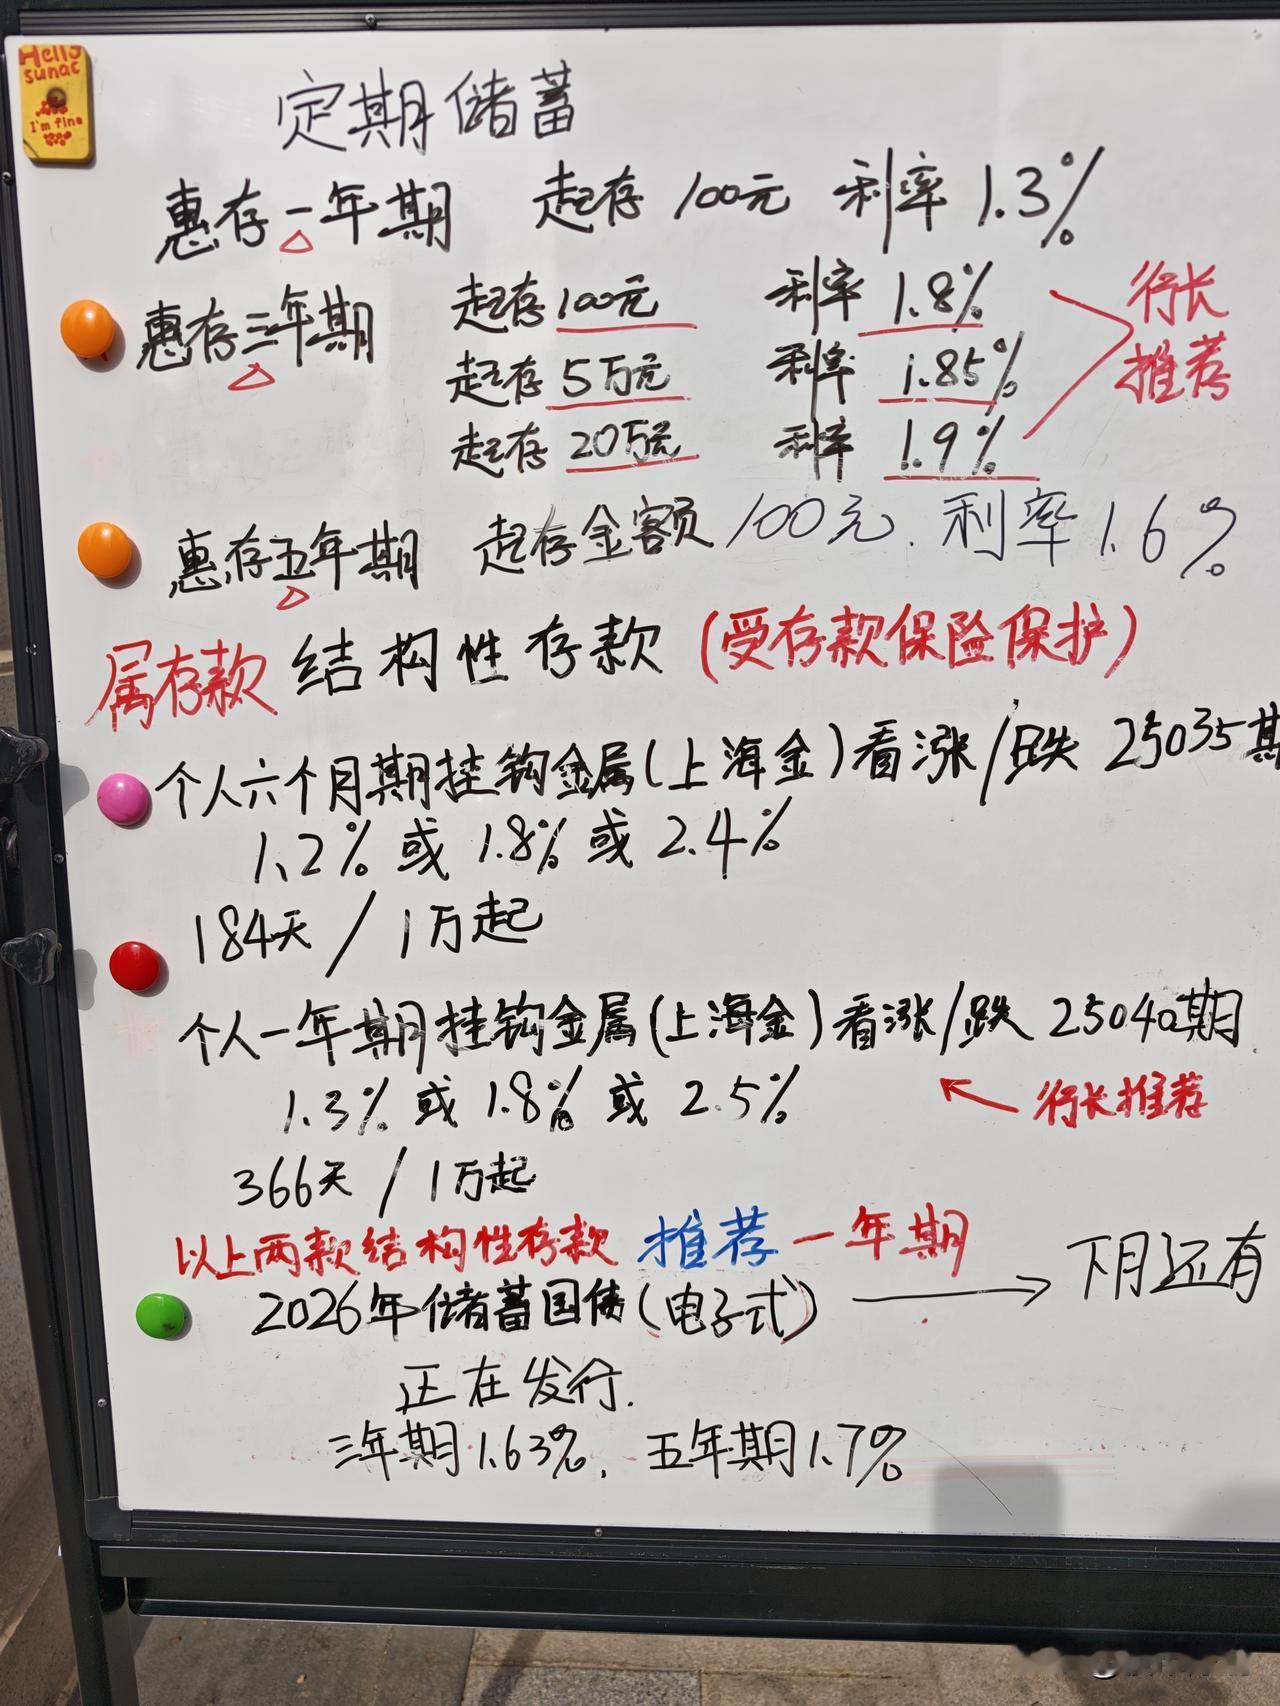 Hello
sunac
I'm fine
定期储蓄
惠存一年期 起存100元 利率1.3%
惠存三年期 起存100元 利率1.8%
起存5万元 利率1.85%
起存20万元 利率1.9%
行长
推荐
惠存五年期 起存金额100元. 利率1.6%
属存款 结构性存款 (受存款保险保护)
个人六个月期挂钩金属(上海金)看涨/跌 25035期
1.2% 或 1.8% 或 2.4%
184天 / 1万起
个人一年期挂钩金属(上海金)看涨/跌 25040期
1.3% 或 1.8% 或 2.5%
行长推荐
366天 / 1万起
以上两款结构性存款 推荐一年期
2026年储蓄国债(电子式) → 下月还有
正在发行.
三年期1.63%, 五年期1.7%